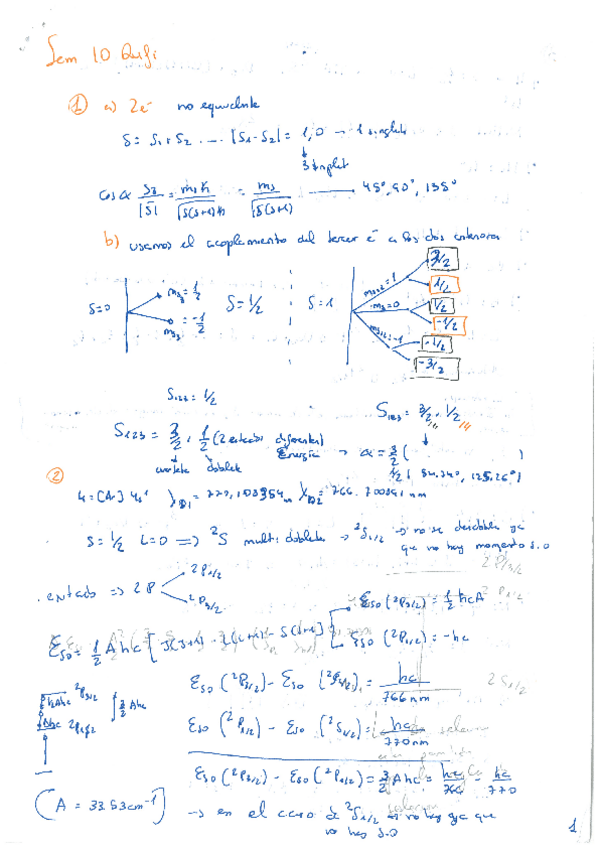 Sem 10 Qufi
① a) 2e⁻ no equivalente
S = S₁+S₂ ... |S₁-S₂| = 1, 0 → 1 singlete
↓
3 triplet
cos α = S_z/|S| = m_s ħ/√(S(S+1)) ħ = m_s/√(S(S+1)) → 45°, 90°, 135°
b) usamos el acoplamiento del tercer e⁻ a los dos anteriores
3/2
S=0 m_s3 = 1/2 S=1/2 S=1 m_s12=1 1/2
m_s3 = -1/2 m_s=0 1/2
-1/2
m_s12=-1 -1/2
-3/2
S₁₂₃ = 1/2 S₁₂₃ = 3/2, 1/2
S₁₂₃ = 3/2, 1/2 (2 estados diferentes) → α = 3/2 ( )
Energía
cuartete doblete 1/2 ( 54.74°, 125.26°)
②
K = [Ar] 4s¹ λ_D1 = 770,108364 nm λ_D2 = 766.700891 nm
S = 1/2 L=0 ⇒ ²S multi: doblete → ²S₁/₂ → no se desdobla ya
que no hay momento S.O
2P₁/₂
. exitado ⇒ 2P
2P₃/₂
E_SO(²P₃/₂) = 1/2 hcA
E_SO = 1/2 A hc [J(J+1) - L(L+1) - S(S+1)]
E_SO(²P₁/₂) = -hc
E_SO(²P₃/₂) - E_SO(²S₁/₂) = hc/766nm
1/2 Ahc ²P₃/₂ 3/2 Ahc
Ahc ²P₁/₂
E_SO(²P₁/₂) - E_SO(²S₁/₂) = hc/770nm
E_SO(²P₃/₂) - E_SO(²P₁/₂) = 3/2 Ahc = hc/766 - hc/770
(A = 33.53cm⁻¹) → en el caso de ²S₁/₂ no hay ya que
no hay S.O
1